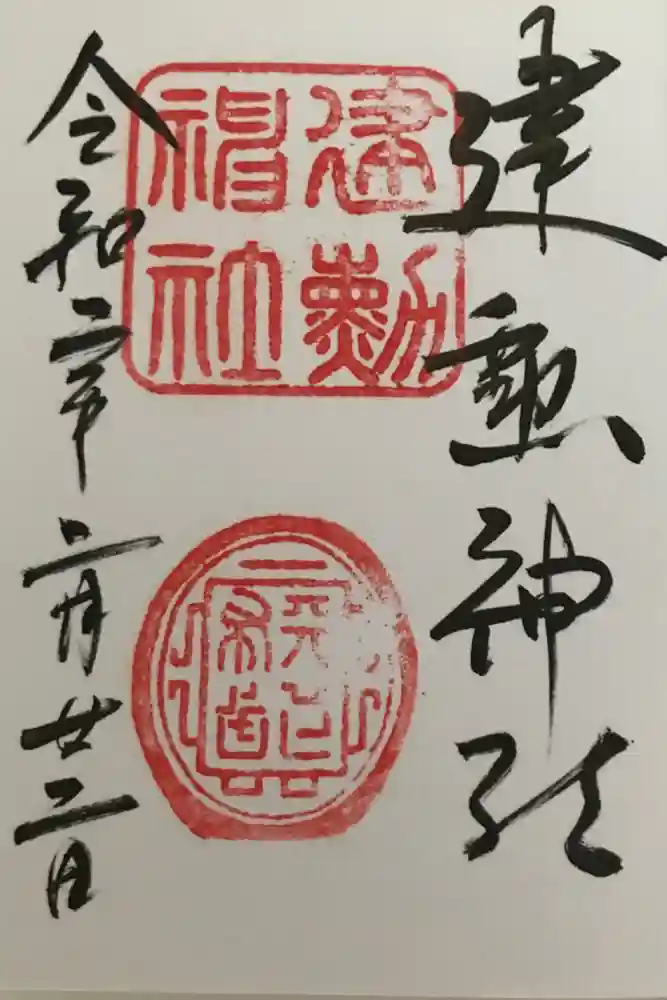 建勲神社
建勲神社
令和二年二月廿二日